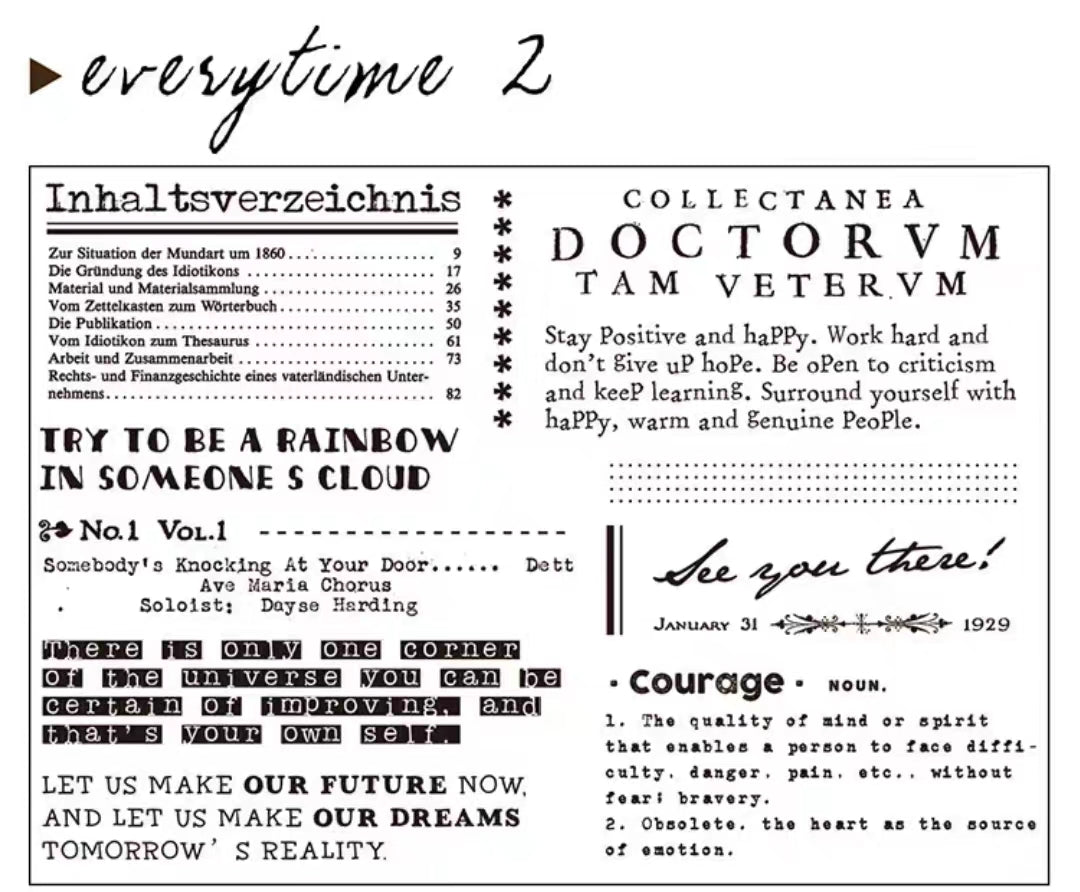 everytime 2
Inhaltsverzeichnis
Zur Situation der Mundart um 1860 . . . . . . . . . . . . . . . . . . . 9
Die Gründung des Idiotikons . . . . . . . . . . . . . . . . . . . . . . . 17
Material und Materialsammlung . . . . . . . . . . . . . . . . . . . . . 26
Vom Zettelkasten zum Wörterbuch . . . . . . . . . . . . . . . . . . . 35
Die Publikation . . . . . . . . . . . . . . . . . . . . . . . . . . . . . . . . 50
Vom Idiotikon zum Thesaurus . . . . . . . . . . . . . . . . . . . . . . 61
Arbeit und Zusammenarbeit . . . . . . . . . . . . . . . . . . . . . . . 73
Rechts- und Finanzgeschichte eines vaterländischen Unter-
nehmens. . . . . . . . . . . . . . . . . . . . . . . . . . . . . . . . . . . . . 82
TRY TO BE A RAINBOW
IN SOMEONE S CLOUD
No.1 VOL.1 ------------------
Somebody's Knocking At Your Door...... Dett
Ave Maria Chorus
Soloist: Dayse Harding
There is only one corner
of the universe you can be
certain of improving, and
that's your own self.
LET US MAKE OUR FUTURE NOW,
AND LET US MAKE OUR DREAMS
TOMORROW' S REALITY.
*
*
*
*
*
*
*
*
*
COLLECTANEA
DOCTORVM
TAM VETERVM
Stay Positive and haPPy. Work hard and
don't give uP hoPe. Be oPen to criticism
and keeP learning. Surround yourself with
haPPy, warm and genuine PeoPle.
See you there!
JANUARY 31 1929
· Courage · NOUN.
1. The quality of mind or spirit
that enables a person to face diffi-
culty. danger. pain. etc.. without
fear; bravery.
2. Obsolete. the heart as the source
of emotion.